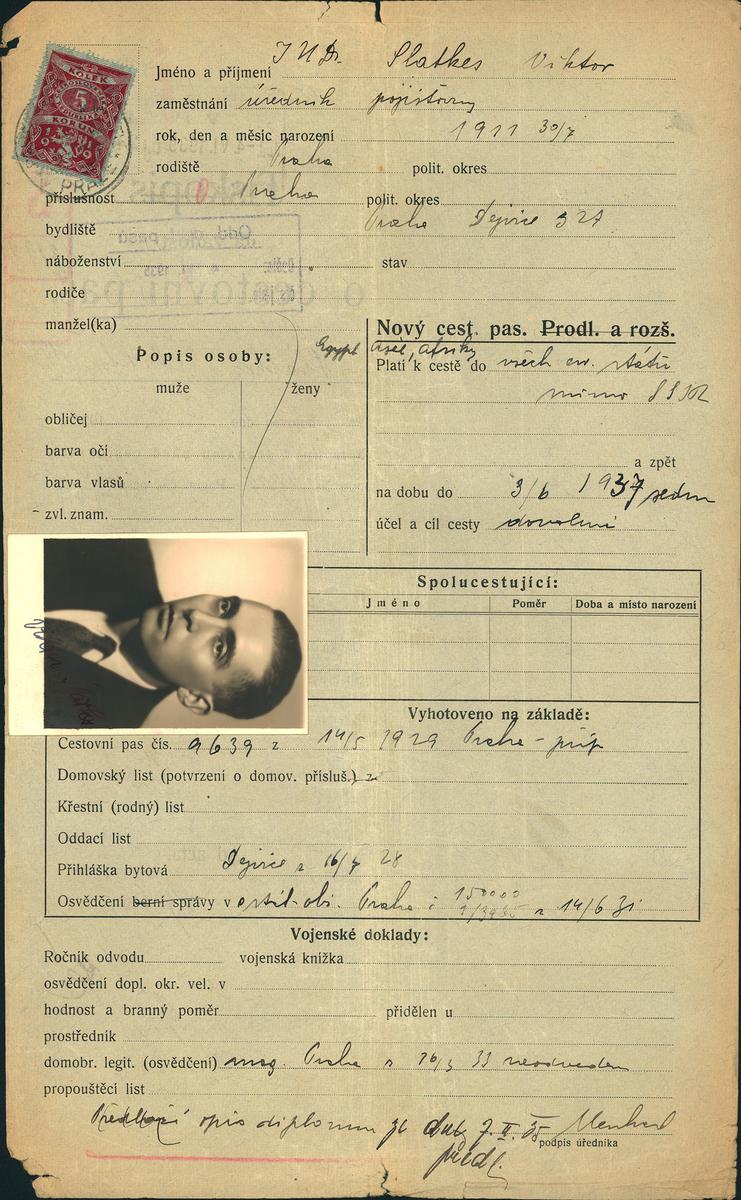 KOLEK
5
KORUN
1931
PRA
Jméno a příjmení JUDr. Slatkes Viktor
zaměstnání úředník pojišťovny
rok, den a měsíc narození 1911 30/7
rodiště Praha polit. okres
příslušnost Praha polit. okres
bydliště Praha Dejvice 327
náboženství stav
rodiče
manžel(ka)
Popis osoby:
muže ženy
obličej
barva očí
barva vlasů
zvl. znam.
Nový cest. pas. Prodl. a rozš.
Egypt Asie, Afriky
Platí k cestě do všech ev. států
mimo SSSR
a zpět
na dobu do 3/6 1937 sedm
účel a cíl cesty dovolená
Spolucestující:
Jméno Poměr Doba a místo narození
Vyhotoveno na základě:
Cestovní pas čís. 9639 z 14/5 1929 Praha
Domovský list (potvrzení o domov. přísluš.)
Křestní (rodný) list
Oddací list
Přihláška bytová Dejvice z 16/7 28
Osvědčení berní správy v Praha z 14/6 31
Vojenské doklady:
Ročník odvodu vojenská knížka
osvědčení dopl. okr. vel. v
hodnost a branný poměr přidělen u
prostředník
domobr. legit. (osvědčení) mag. Praha z 16/3 33 neodveden
propouštěcí list
opis diplomu 7. II. 35
podpis úředníka
předl.